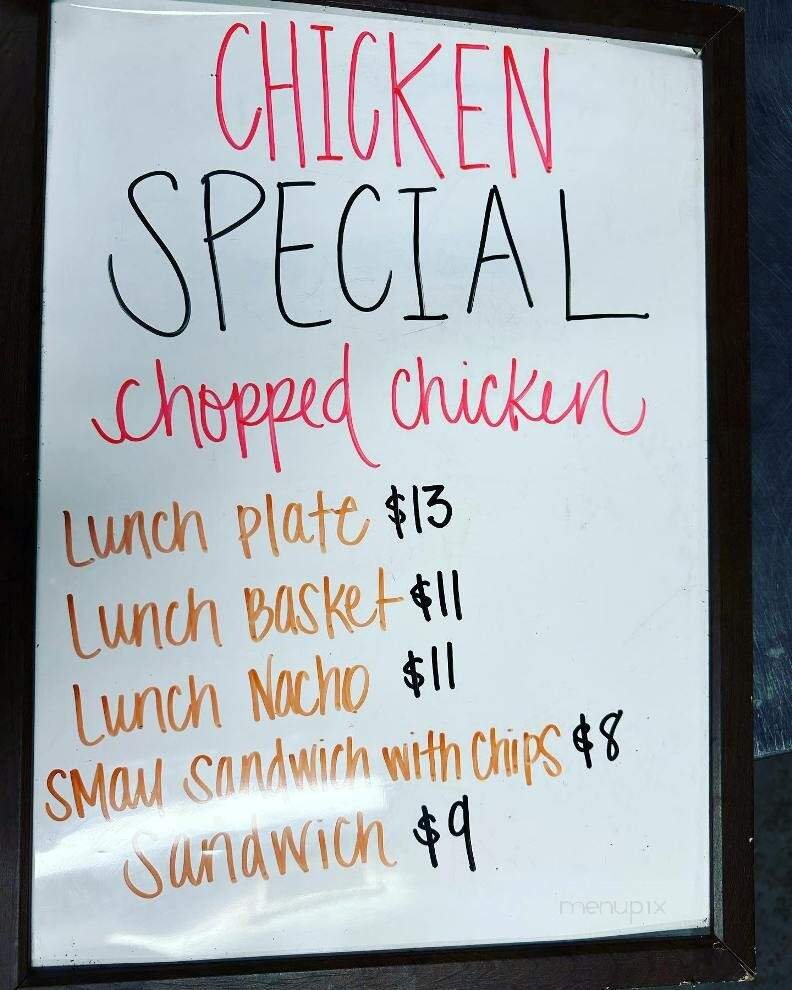 CHICKEN
SPECIAL
chopped chicken
Lunch plate $13
Lunch Basket $11
Lunch Nacho $11
small sandwich with chips $8
Sandwich $9
menupix